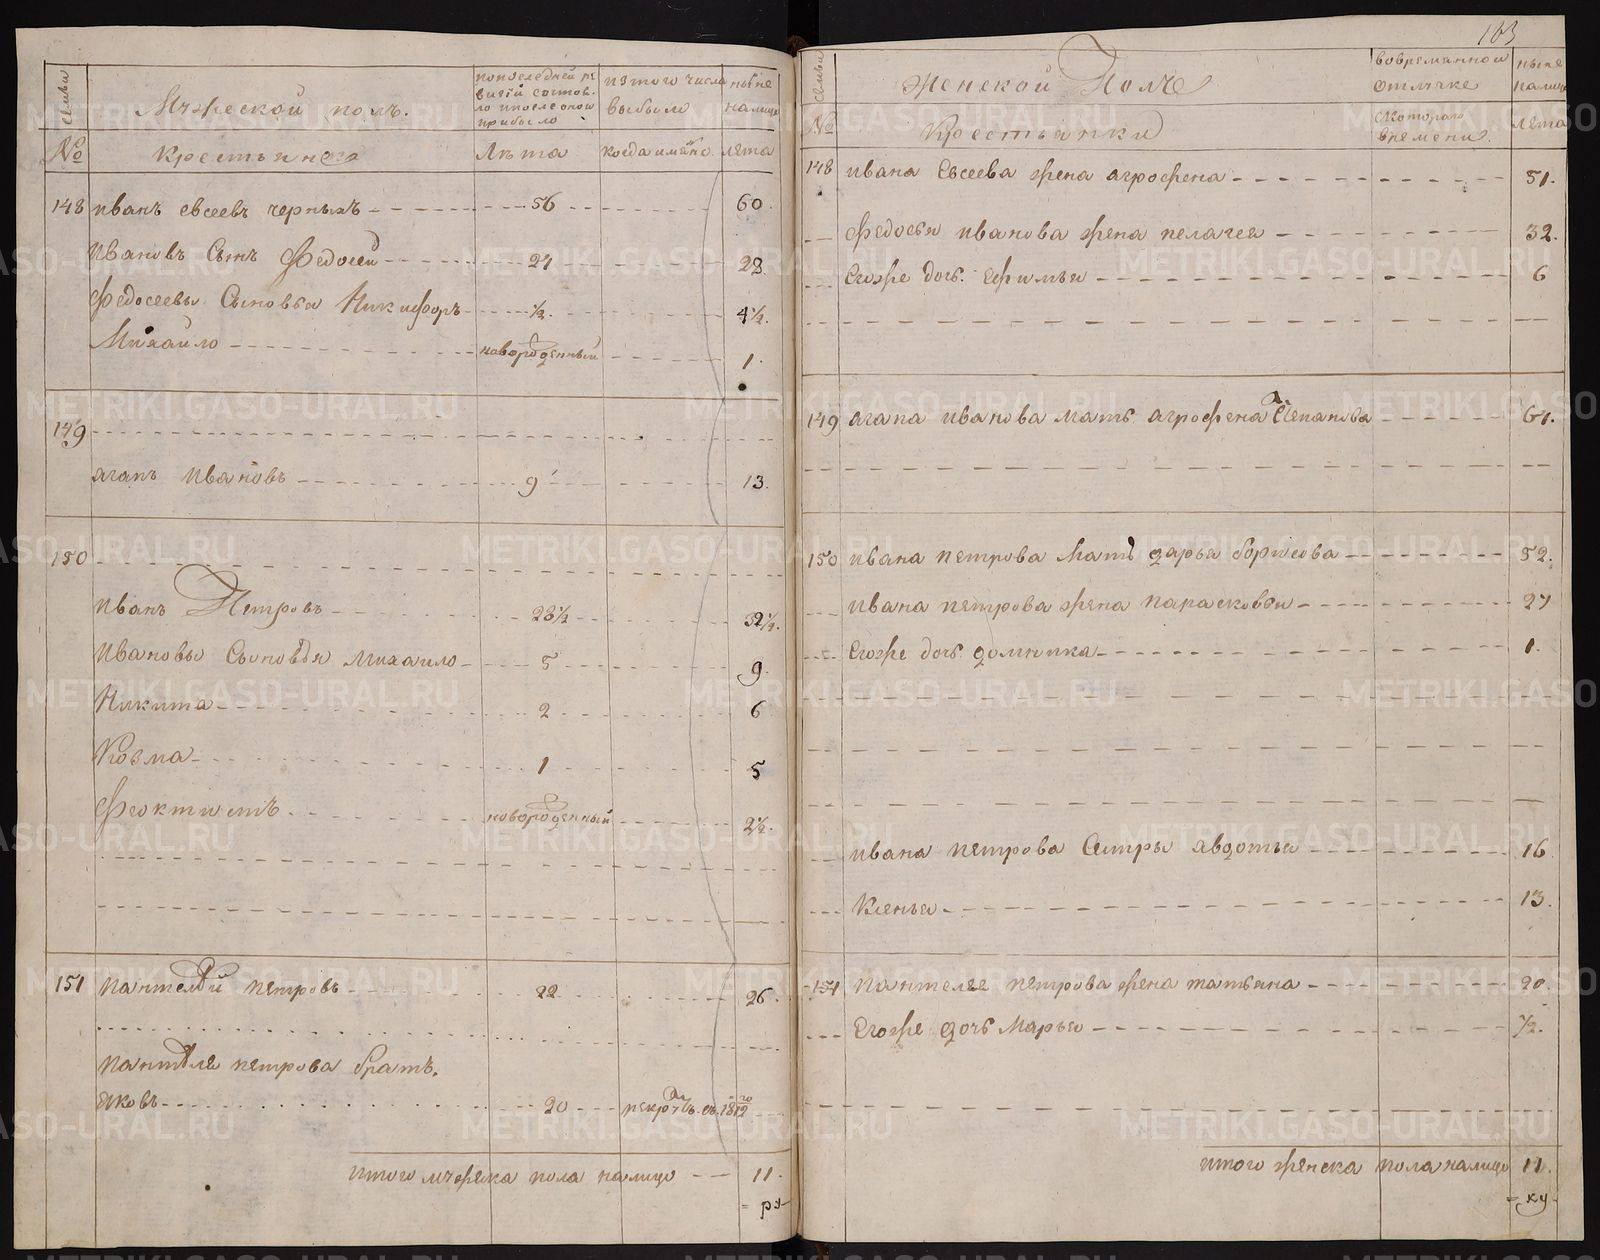 163
Семьи
Мужеской полъ.
по последней ре
визїи состоя-
ло и после оной
прибыло
из того числа
выбыло
ныне
налицо
№
Крестьяне
Лѣта
когда имяно
лета
148 Иванъ Евсеевъ Черныхъ 56 60.
Ивановъ Сынъ Федосей 24 28
Федосеевы Сыновья Никифоръ ½. 4½.
Михайло новорожденный 1.
149
Агапъ Ивановъ 9 13.
150
Иванъ Петровъ 28½ 32½.
Ивановы Сыновья Михайло 5 9.
Никита 2 6
Козма 1 5
Феоктистъ новорожденный 2½.
151 Пантелей Петровъ 22 26.
Пантелея Петрова братъ.
Яковъ 20 рекрутъ въ 1812го
итого мужеска пола налицо 11.
Семьи
Женской Полъ
во временной
отлучке
ныне
налицо
№
Крестьянки
с котораго
времени.
лета
148 Ивана Евсеева жена Агрофена 51.
Федосея Иванова жена Пелагея 32.
Егоже дочь Ефимья 6
149 Агапа Иванова мать Агрофена Степанова 61.
150 Ивана Петрова Мать Дарья Борисова 52.
Ивана Петрова жена Парасковья 27
Егоже дочь Домника 1.
Ивана Петрова Сестры Авдотья 16
Ксенья 13.
151 Пантелея Петрова жена Татьяна 20.
Егоже дочь Марья ½.
итого женска пола налицо 11.
METRIKI.GASO-URAL.RU